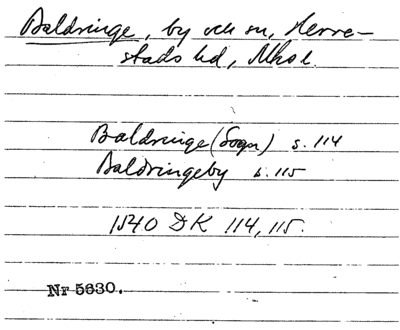 Baldringe, by och sn, Herre-
stads hd, Mhs l.
Baldringe (Sogn) s. 114
Baldringeby s. 115
1540 DK 114, 115.
Nr 5630.